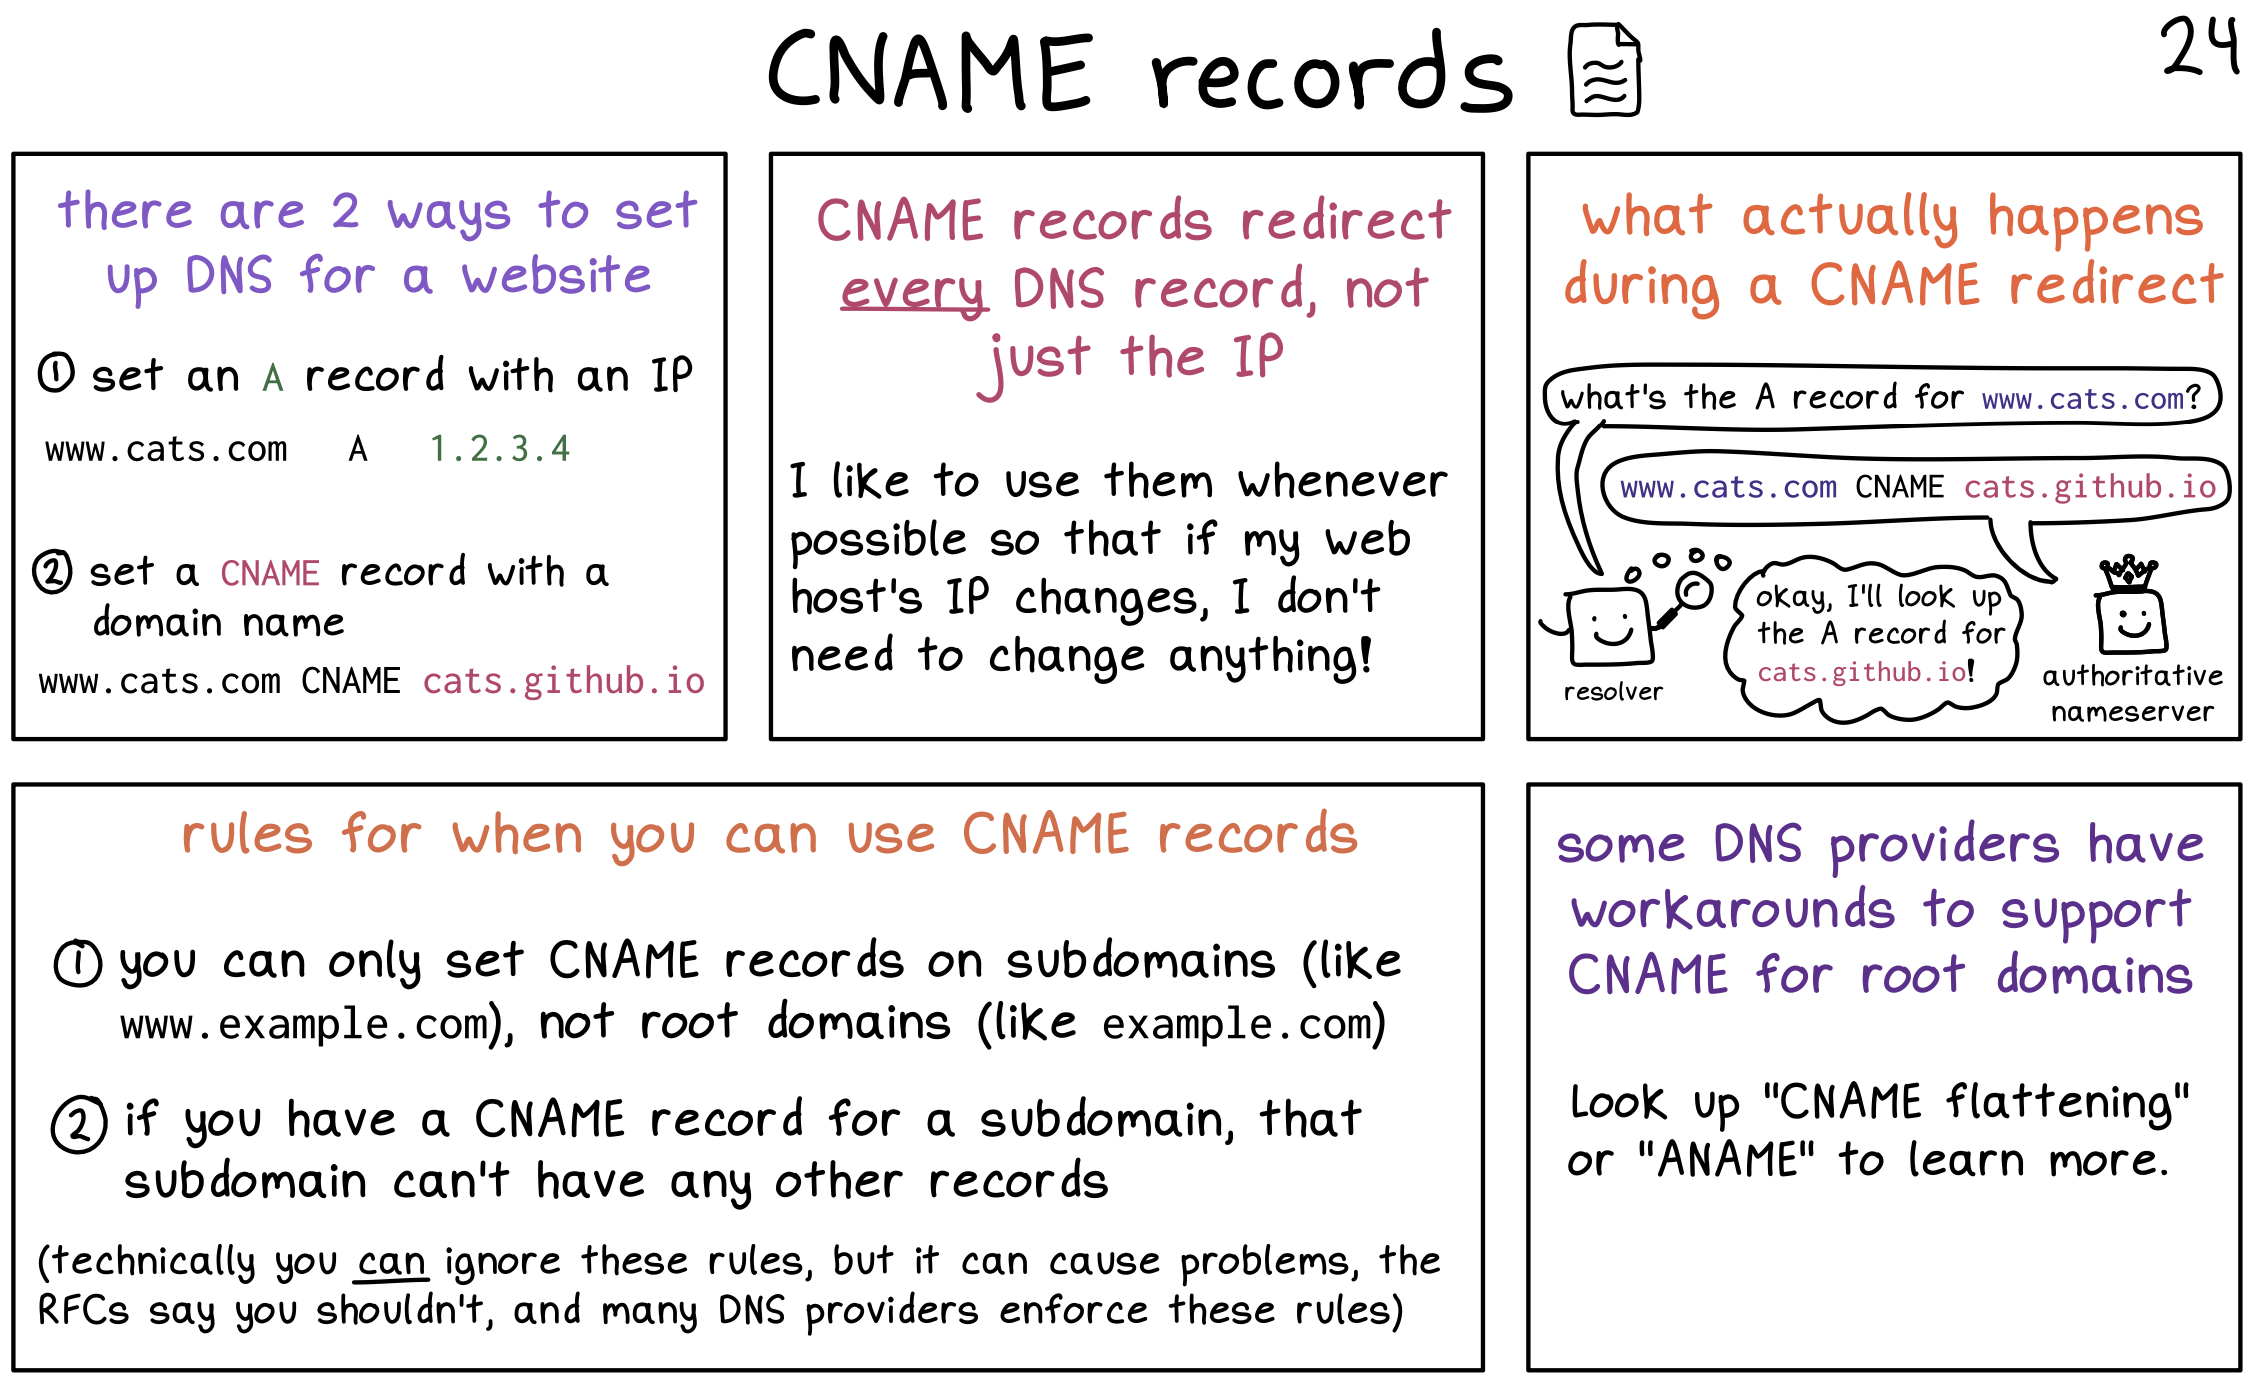 CNAME records
24
there are 2 ways to set
up DNS for a website
① set an A record with an IP
www.cats.com A 1.2.3.4
② set a CNAME record with a
domain name
www.cats.com CNAME cats.github.io
CNAME records redirect
every DNS record, not
just the IP
I like to use them whenever
possible so that if my web
host's IP changes, I don't
need to change anything!
what actually happens
during a CNAME redirect
what's the A record for www.cats.com?
www.cats.com CNAME cats.github.io
okay, I'll look up
the A record for
cats.github.io!
resolver
authoritative
nameserver
rules for when you can use CNAME records
① you can only set CNAME records on subdomains (like
www.example.com), not root domains (like example.com)
② if you have a CNAME record for a subdomain, that
subdomain can't have any other records
(technically you can ignore these rules, but it can cause problems, the
RFCs say you shouldn't, and many DNS providers enforce these rules)
some DNS providers have
workarounds to support
CNAME for root domains
Look up "CNAME flattening"
or "ANAME" to learn more.